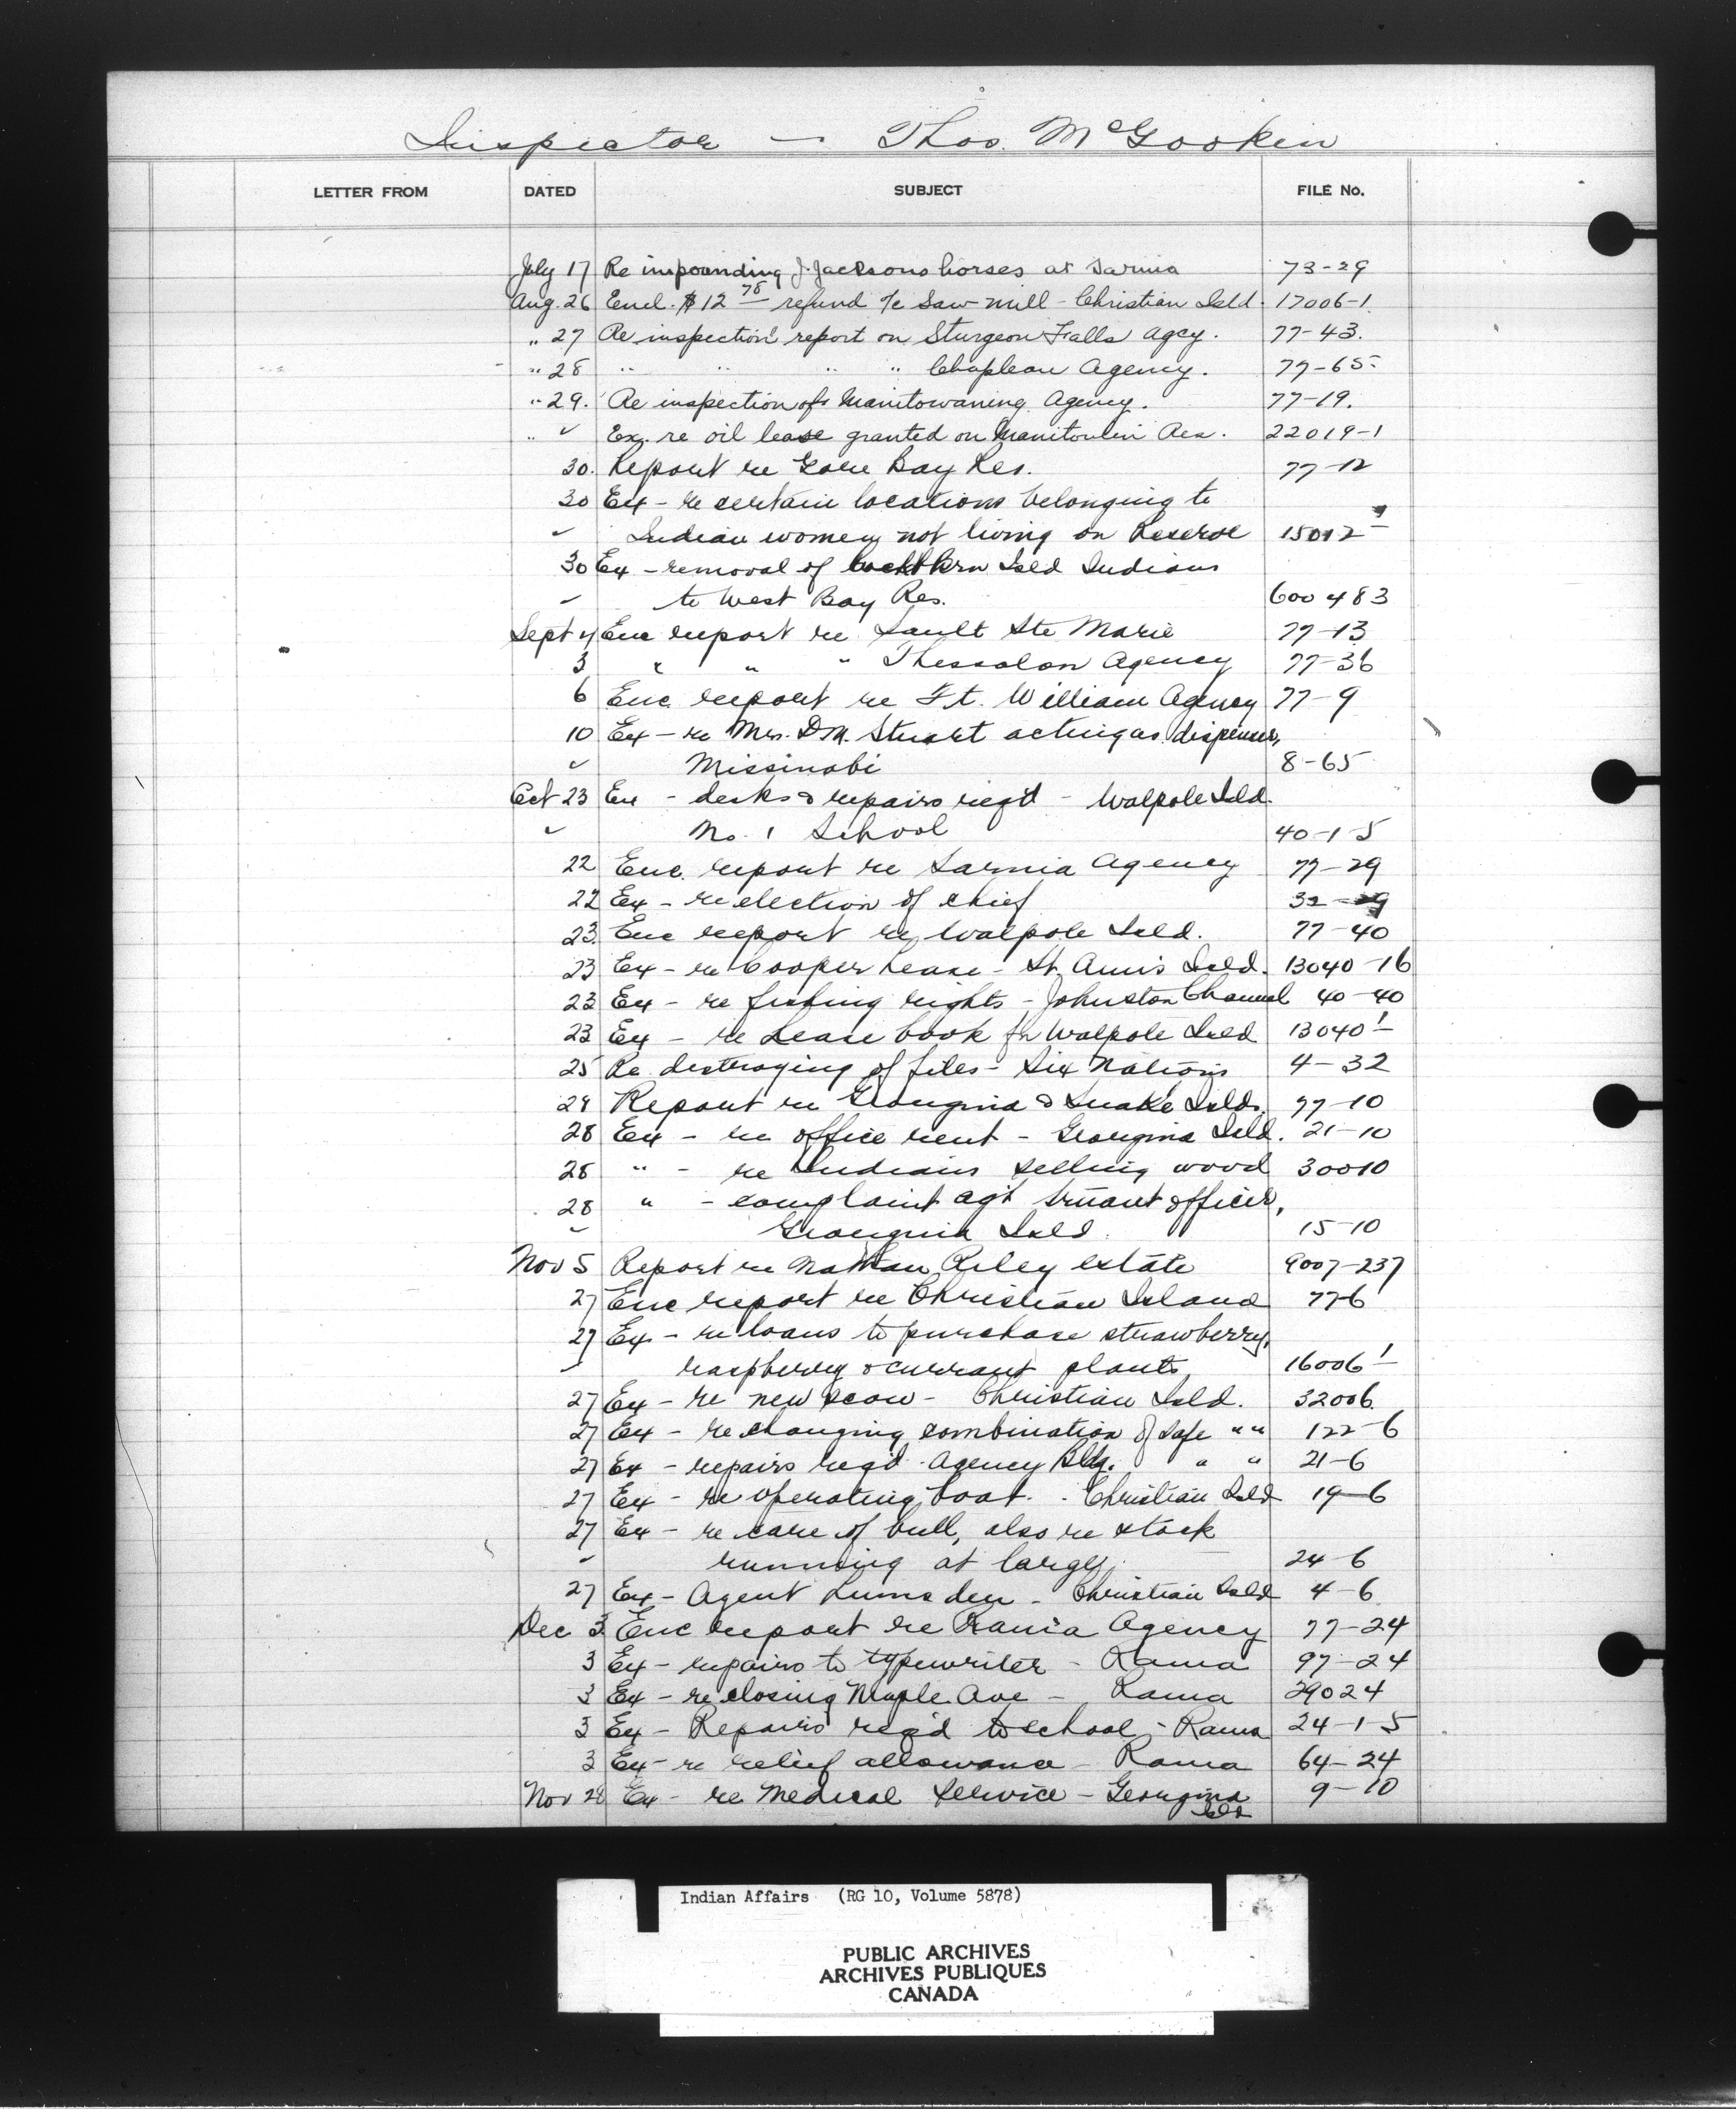 Inspector — Thos. McGookin
LETTER FROM DATED SUBJECT FILE No.
July 17 Re impounding J. Jacksons horses at Sarnia 73-29
Aug. 26 Encl. $12 78 refund a/c Saw-mill - Christian Isld. 17006-1
" 27 Re inspection report on Sturgeon Falls Agcy. 77-43.
" 28 " " " " Chapleau Agency. 77-65
" 29. Re inspection of Manitowaning Agency. 77-19.
" " Ex. re oil lease granted on Manitoulin Res. 22019-1
30. Report re Gore Bay Res. 77-12
30 Ex - re certain locations belonging to
" Indian women not living on Reserve 15012-1
30 Ex - removal of Cockburn Isld Indians
" to West Bay Res. 600483
Sept 4 Enc report re Sault Ste Marie 77-13
3 " " " Thessalon Agency 77-36
6 Enc. report re Ft. William Agency 77-9
10 Ex - re Mrs. D.M. Stuart acting as dispenser,
" Missinabi 8-65
Oct 23 Ex - desks & repairs req'd - Walpole Isld.
" No. 1 School 40-1-5
22 Enc. report re Sarnia Agency 77-29
22 Ex - re election of chief 32-29
23. Enc report re Walpole Isld. 77-40
23 Ex - re Cooper Lease - St. Ann's Isld. 13040-16
23 Ex - re fishing rights - Johnston Channel 40-40
23 Ex - re Lease book for Walpole Isld 13040-1
25 Re destroying of files - Six Nations 4-32
28 Report re Georgina & Snake Islds. 77-10
28 Ex - re office rent - Georgina Isld. 21-10
28 " - re Indians selling wood 30010
28 " - complaint agt truant officer,
" Georgina Isld. 15-10
Nov 5 Report re Nathan Riley estate 9007-237
27 Enc report re Christian Island 77-6
27 Ex - re loans to purchase strawberry,
" raspberry & currant plants 16006-1
27 Ex - re new scow - Christian Isld. 32006
27 Ex - re changing combination of safe " " 122-6
27 Ex - repairs req'd Agency Bldg. " " 21-6
27 Ex - re operating boat - Christian Isld 19-6
27 Ex - re care of bull, also re stock
" running at large, 24-6
27 Ex - Agent Lumsden - Christian Isld 4-6
Dec 3 Enc report re Rama Agency 77-24
3 Ex - repairs to typewriter - Rama 97-24
3 Ex - re closing Maple Ave - Rama 29024
3 Ex - Repairs req'd to school - Rama 24-1-5
3 Ex - re relief allowance - Rama 64-24
Nov 28 Ex - re Medical Service - Georgina 9-10
Isld
Indian Affairs (RG 10, Volume 5878)
PUBLIC ARCHIVES
ARCHIVES PUBLIQUES
CANADA